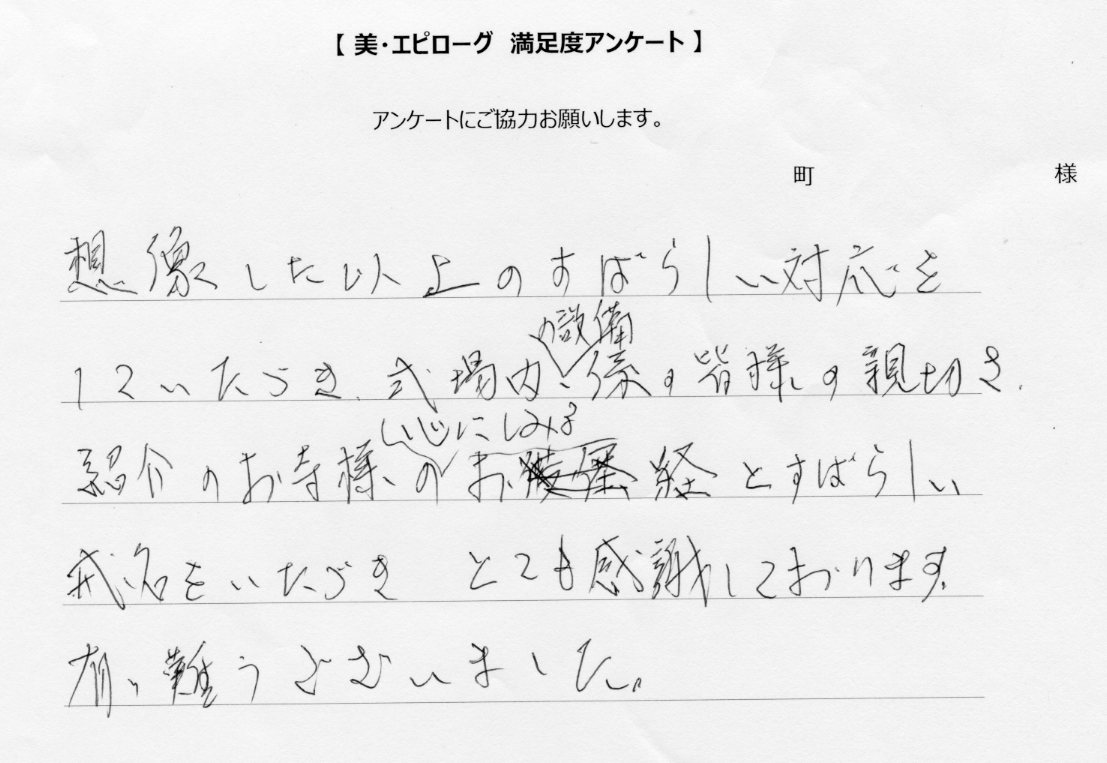 【 美・エピローグ 満足度アンケート 】
アンケートにご協力お願いします。
町 様
想像した以上のすばらしい対応を
していただき、式場内の設備、係の皆様の親切さ、
紹介のお寺様の心にしみるお経とすばらしい
戒名をいただき とても感謝しております。
有り難うございました。